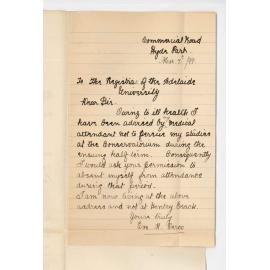 Commercial Road
Hyde Park
Mar. 7th /99
To The Registrar of the Adelaide
University
Dear Sir.
Owing to ill health I
have been advised by medical
attendant not to pursue my studies
at the Conservatorium during the
ensuing half term. Consequently
I would ask your permission to
absent myself from attendance
during that period.
I am now living at the above
address and not at Henley Beach.
Yours truly
Eva M.